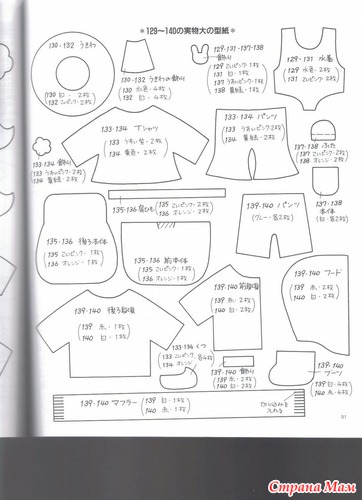 *129〜140の実物大の型紙*
130・132 うきわ
130 白・2枚
132 こいピンク・2枚
130・132 うきわの飾り
130 水色・4枚
132 白・4枚
129・131・137・138
飾り
129 こいピンク・1枚
131 白・1枚
137 うすいピンク・1枚
138 オレンジ・1枚
129・131 水着
129 水色・2枚
131 こいピンク・2枚
133・134 飾り
133 うすいピンク・2枚
134 黄緑・2枚
133・134 Tシャツ
133 うすい紫・2枚
134 黄色・2枚
133・134 パンツ
133 うすいピンク・2枚
134 黄緑・2枚
137・138 ふた
137 こいピンク・2枚
138 オレンジ・2枚
137・138
本体
(白・各2枚)
135・136 肩ひも
135 こいピンク・2枚
136 オレンジ・2枚
135・136 後ろ本体
135 こいピンク・1枚
136 オレンジ・1枚
135・136 前本体
135 こいピンク・1枚
136 オレンジ・1枚
139・140 パンツ
(グレー・各2枚)
139・140 フード
139 赤・2枚
140 白・2枚
139・140 後ろ身頃
139 赤・1枚
140 白・1枚
139・140 前身頃
139 赤・2枚
140 白・2枚
133・134 くつ
133 こいピンク・各4枚
139・140 飾り
139 白・2枚
140 赤・2枚
139・140
ブーツ
139 白・4枚
140 赤・4枚
139・140 マフラー
139 白・1枚
140 赤・1枚
切り込みを
入れる
91
Страна Мам